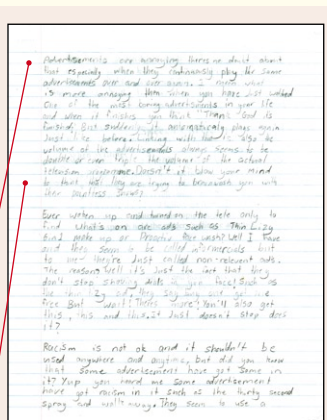 Advertisements are annoying, theres no doubt about
that especially when they continuously play the same
advertisements over and over again. I mean what
is more annoying than when you have just watched
one of the most boring advertisements in your life
and when it finishes you think "Thank God is
finished, But suddenly it annoyingly plays again
Just like before waiting with them is also the
volume of the advertisements always seems to be
double or even triple the volume of the actual
television Doesn't it blow your mind
to think that they are trying to brainwash you with
their pointless
Ever woken up and turned on the tele only to
find what's on are ads such as Thin Lizy
make up or Proactiv face wash? Well I have
and they seem to be called infomercials but
to me they're Just called non-relevent ads.
The reason? Well it's Just the fact that they
don't stop shoving deals in you face! Such as
for thin lizy and they say buy one get one
free But "wait! There's more! You'll also get
this, this and this. It Just doesn't stop does
it?
Racism is not ok and it shouldn't be
used anywhere and anytime, but did you know
that some advertisement have got some in
it? Yup you heard me some advertisement
have got racism in it such as the thirty second
spray and walk away. They seem to use a